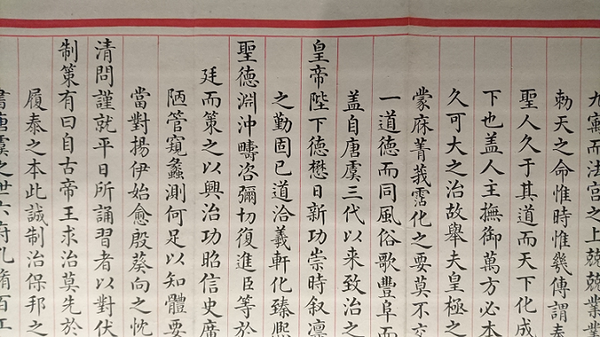 九寓而法宮之上兢兢業業
勑天之命惟時惟幾傳謂奉
聖人久于其道而天下化成
下也蓋人主撫御萬方必本
久可大之治故舉夫皇極之
蒙庥菁莪霑化之要莫不交
一道德而同風俗歌豐阜而
蓋自唐虞三代以来致治之
皇帝陛下德懋日新功崇時叙凛
之勤固已道洽羲軒化臻熙
聖德淵沖疇咨彌切復進臣等於
廷而策之以興治功昭信史席
陋管窺蠡測何足以知體要
當對揚伊始愈殷葵向之忱
清問謹就平日所誦習者以對伏
制策有曰自古帝王求治莫先於
履泰之本此誠制治保邦之
書唐虞之世六府孔脩百工